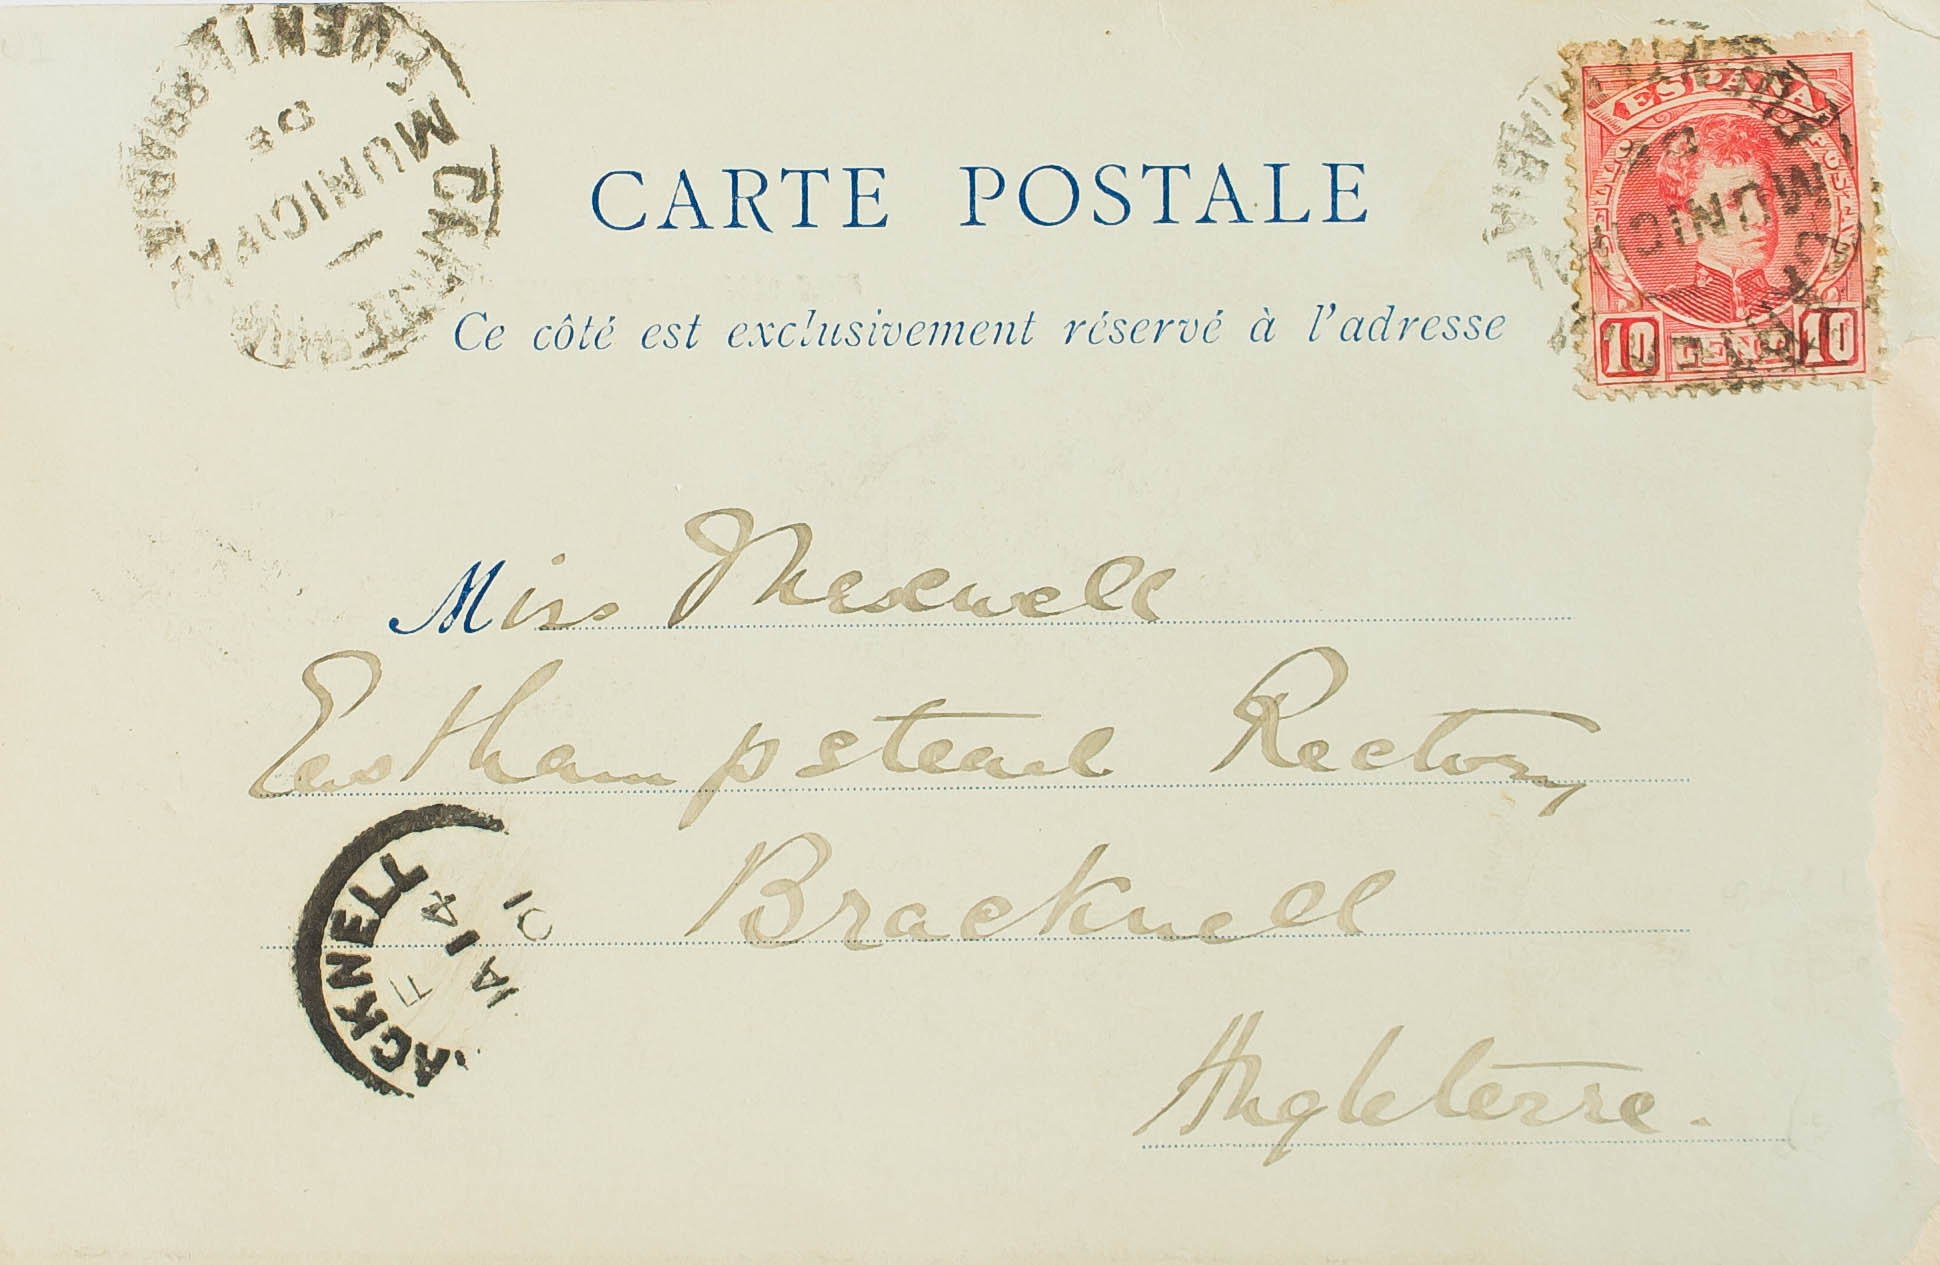 CARTE POSTALE
Ce côté est exclusivement réservé à l'adresse
ESPAÑA
10 CENT 10
MUNICIPAL
DE
Miss Maxwell
Easthampstead Rectory
Bracknell
Angleterre.
ACKNELL
F
JA 14
01